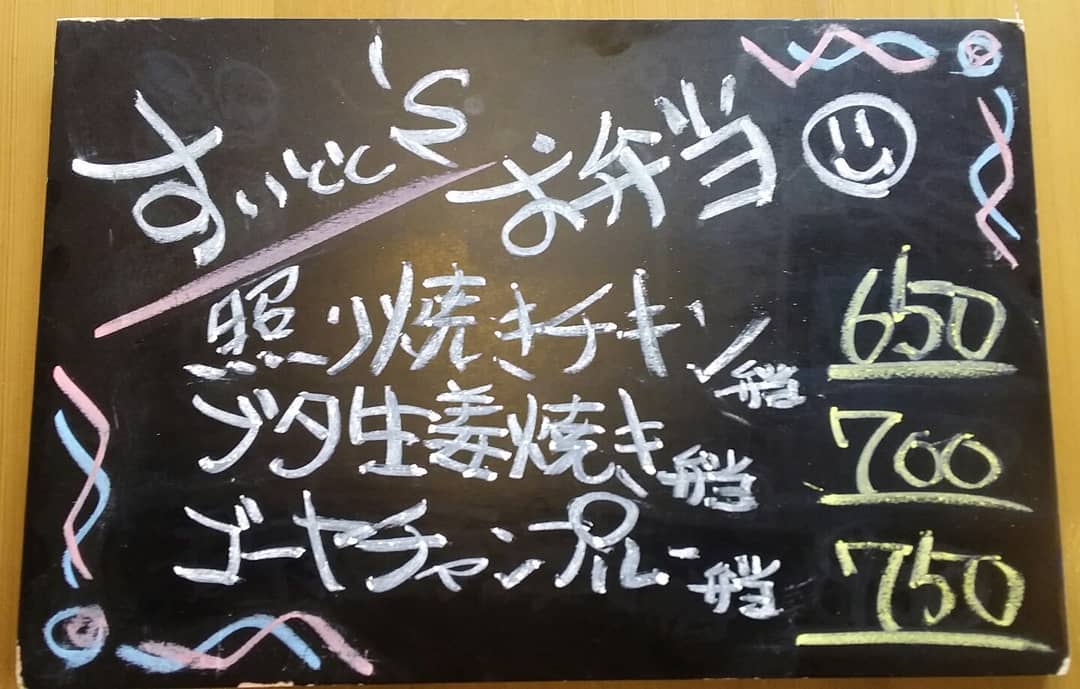 すいとと's お弁当
照り焼きチキン弁当 650
ブタ生姜焼き弁当 700
ゴーヤチャンプルー弁当 750